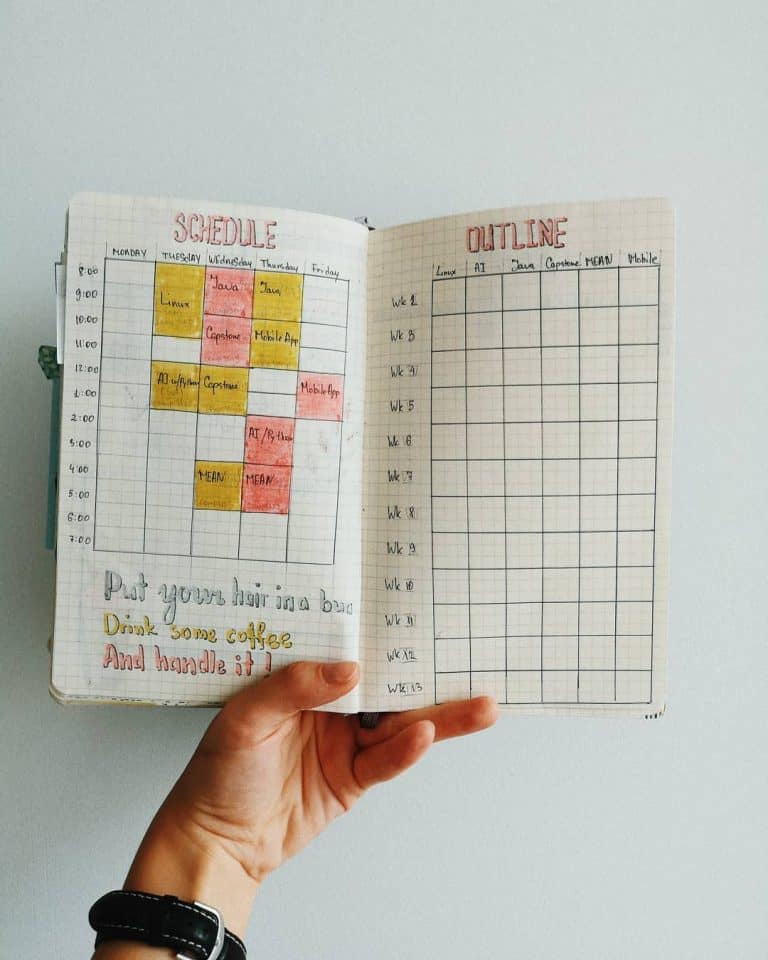 SCHEDULE
MONDAY TUESDAY Wednesday Thursday Friday
8:00
Java Java
9:00
Linux
10:00
Capstone Mobile App
11:00
12:00
AI w/Python Capstone Mobile App
1:00
2:00
AI/Python
3:00
4:00
MEAN MEAN
5:00
6:00
7:00
Put your hair in a bun
Drink some coffee
And handle it!
OUTLINE
Linux AI Java Capstone MEAN Mobile
Wk 2
Wk 3
Wk 4
Wk 5
Wk 6
Wk 7
Wk 8
Wk 9
Wk 10
Wk 11
Wk 12
Wk 13